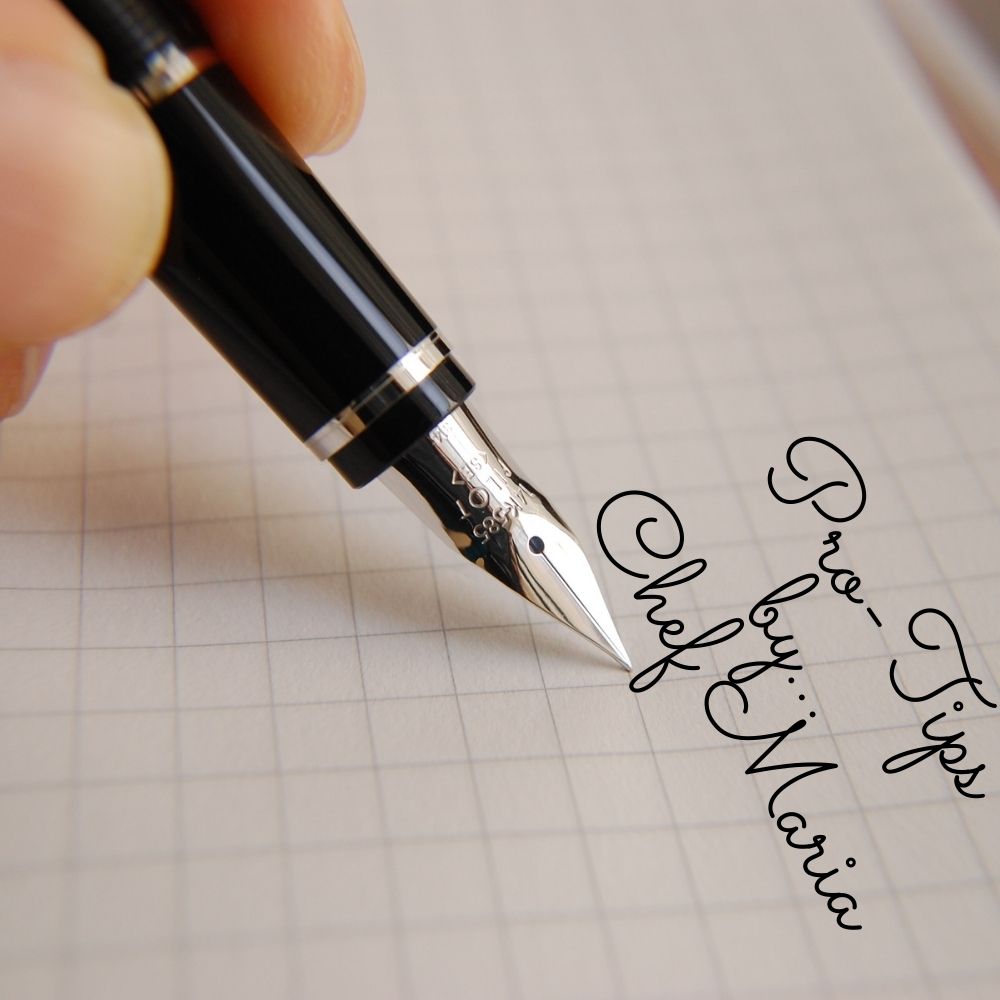 Pro-Tips
by...
Chef Maria
PILOT